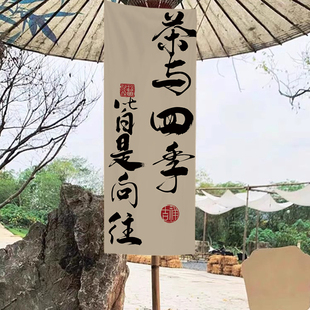 茶与四季
皆是向往
吉祥